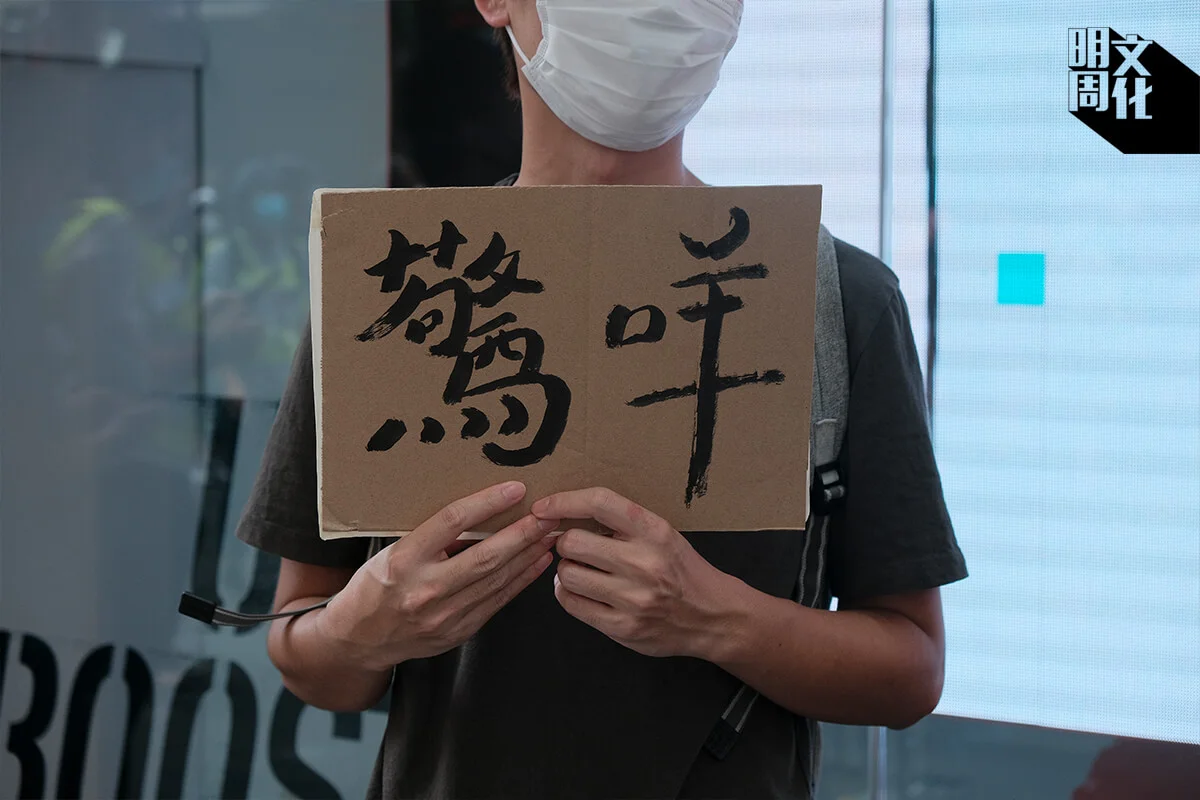 驚咩
明周
文化